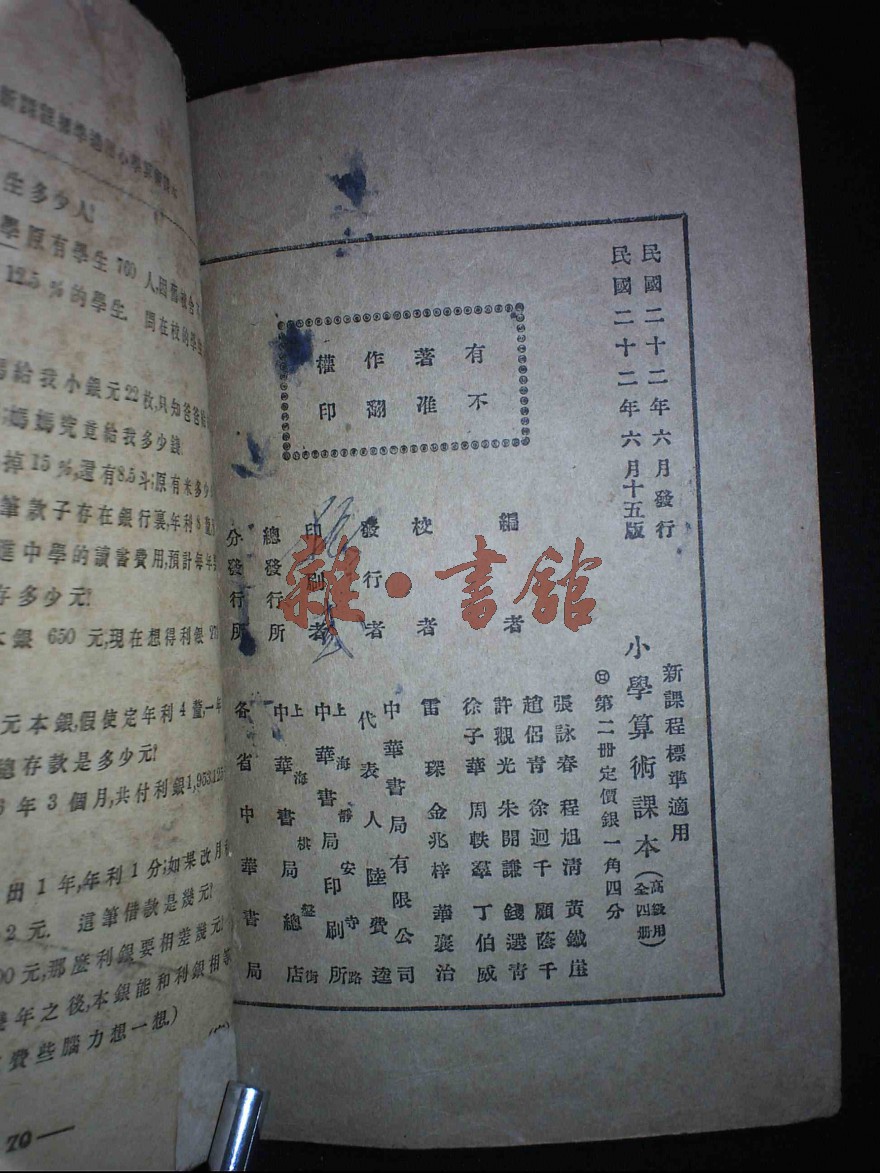 民國二十二年六月發行
民國二十二年六月十五版
新課程標準適用
小學算術課本(高級用全四冊)
第二冊定價銀一角四分
有著作權
不准翻印
編者
張詠春 程旭清 黃鐵崖
趙侶青 徐迥千 顧蔭千
許觀光 朱開謙 錢選青
徐子華 周軼羣 丁伯威
校者
雷琛 金兆梓 華襄治
發行者
中華書局有限公司
代表人 陸費逵
印刷者
上海靜安寺路
中華書局印刷所
總發行所
上海棋盤街
中華書局總店
分發行所
各省中華書局
雜·書館
生多少人?
學原有學生 760 人,因舊校舍
12.5 %的學生. 問在校的學生
給我小銀元22枚,只知爸爸
媽媽究竟給我多少錢.
掉 15 %,還有8.5斗;原有米多少
筆款子存在銀行裏,年利8釐
進中學的讀書費用,預計每年
存多少元?
本銀 650 元,現在想得利銀
元本銀,假使定年利4釐,一年
總存款是多少元?
年3個月,共付利銀1,953.125
出1年,年利1分;如果改月
2元. 這筆借款是幾元?
00元,那麼利銀要相差幾元?
年之後,本銀能和利銀相等
費些腦力想一想.)
70—